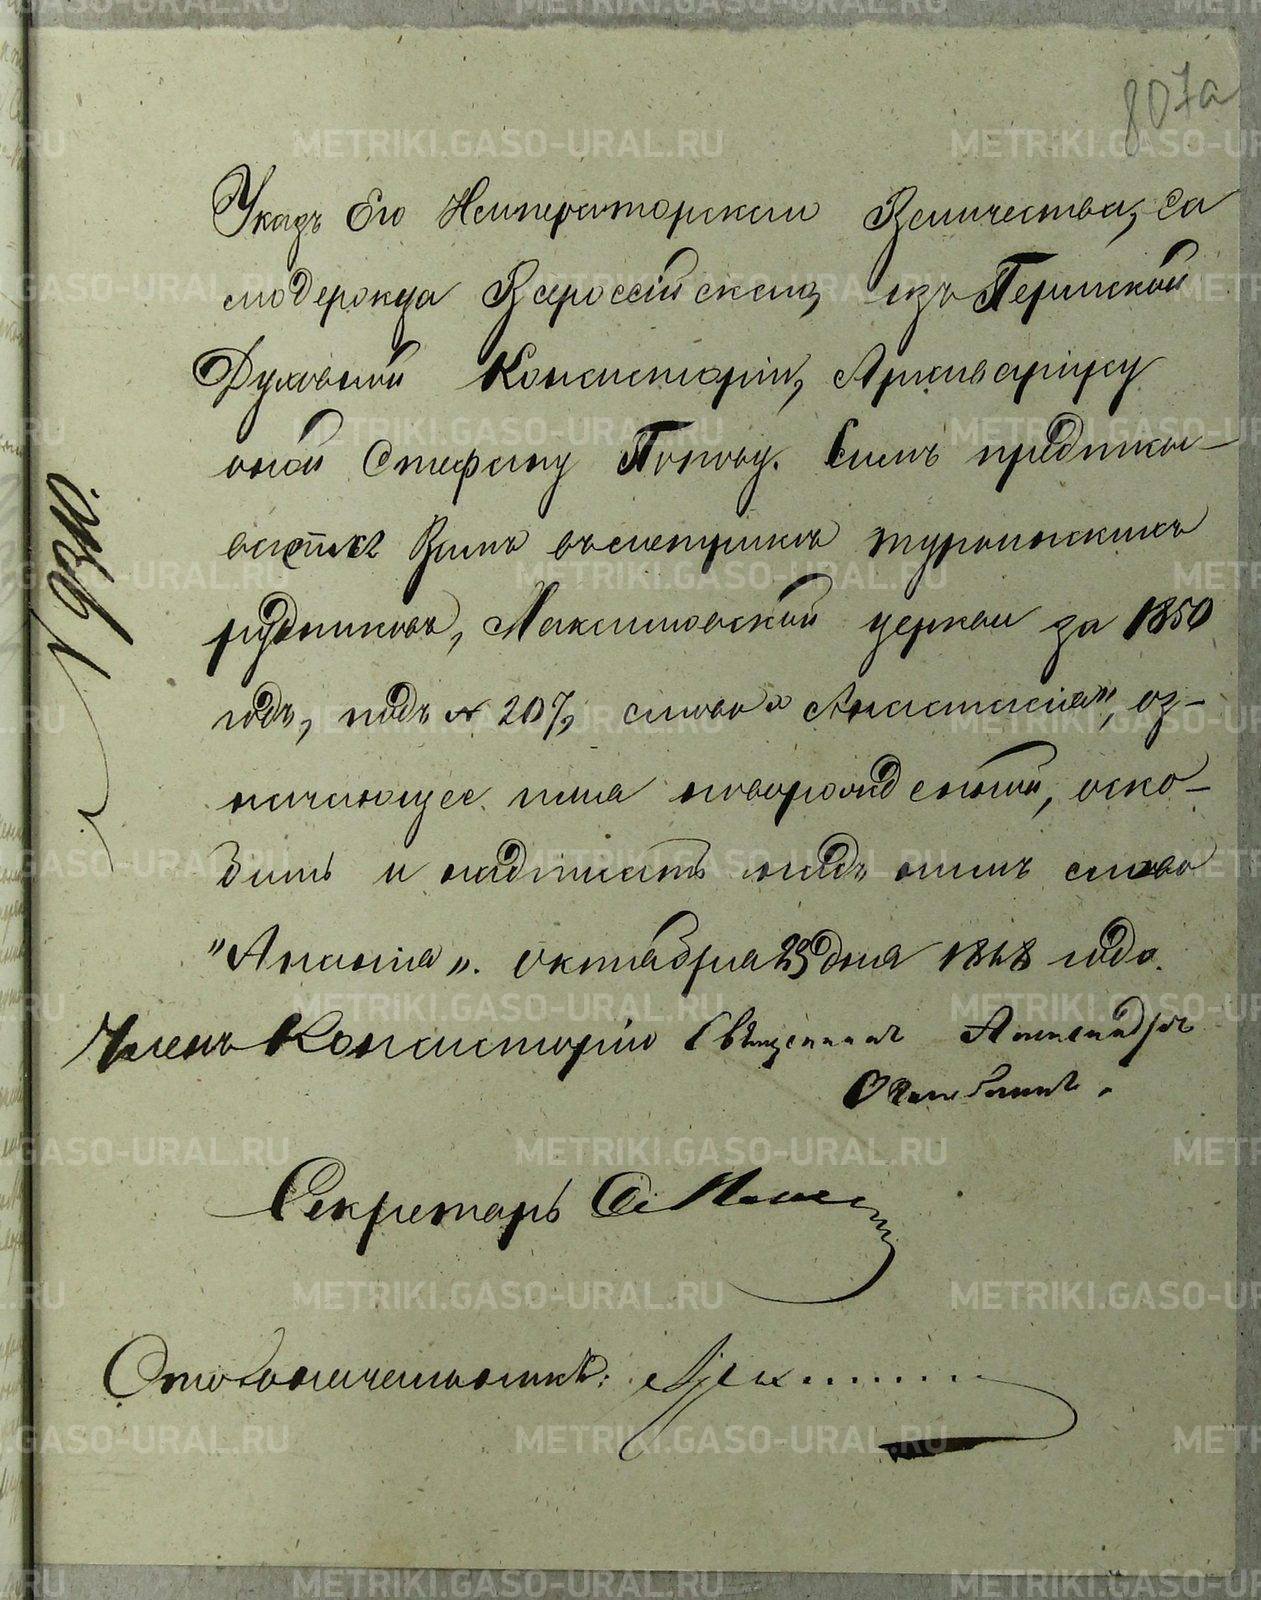 807а
Указъ Его Императорскаго Величества, Са
модержца Всероссійскаго, изъ Пермской
Духовной Консисторіи, Архиваріусу
оной Стефану Попову. Симъ предписы-
вается Вамъ въ метрикѣ турьинскихъ
рудниковъ, Максимовской церкви за 1850
годъ, подъ № 207, слово "Анастасія", оз-
начающее имя новорожденной, оско-
блить и надписать надъ нимъ слово
"Анана". октября 29 дня 1868 года.
№ 9310.
Членъ Консисторіи Священникъ Александръ
Секретарь
Столоначальникъ:
METRIKI.GASO-URAL.RU